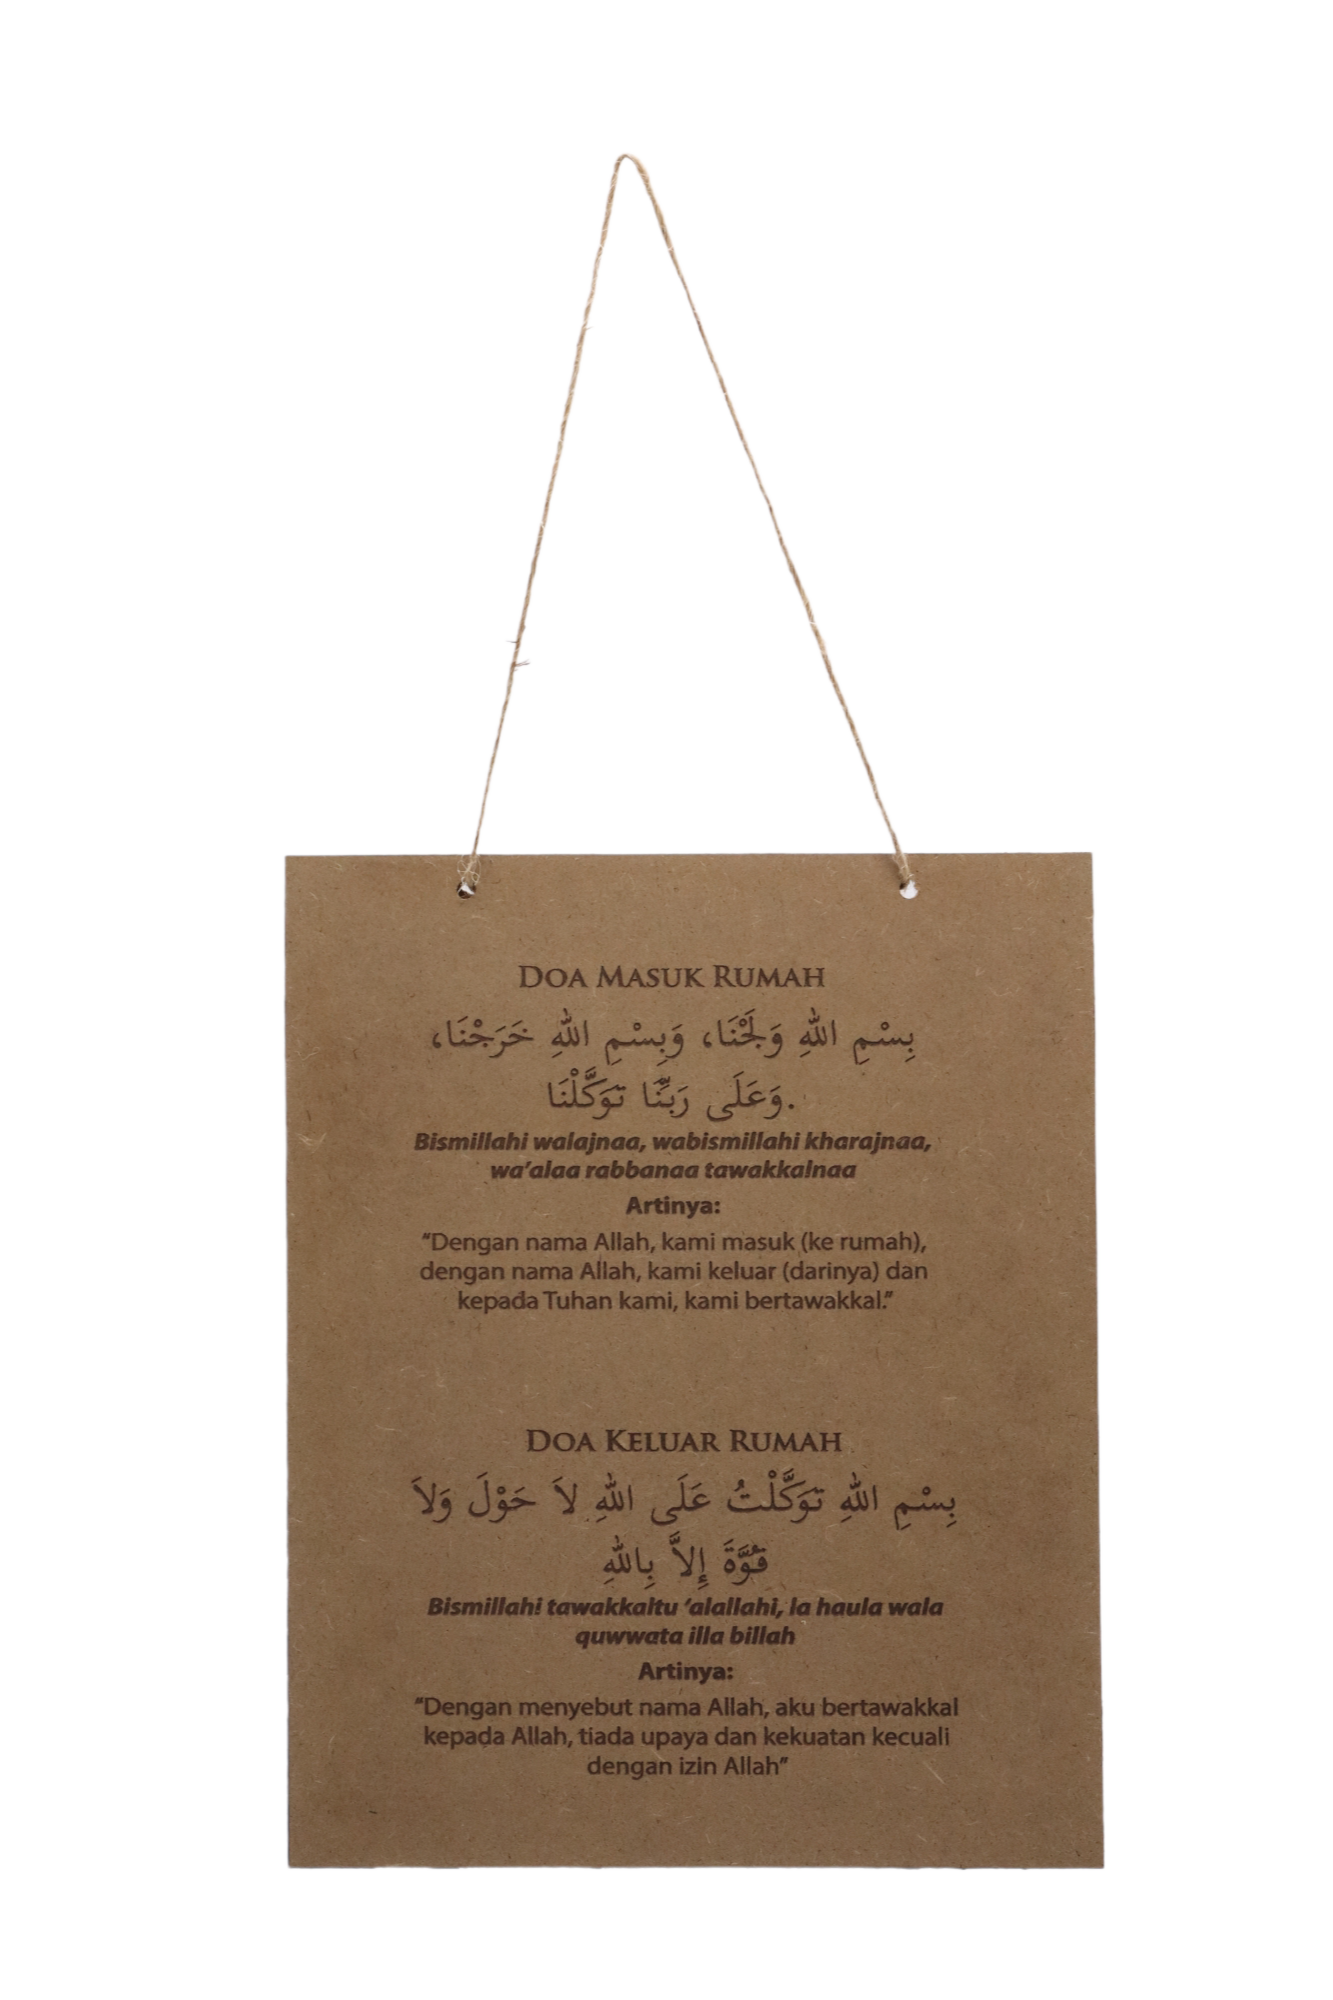 DOA MASUK RUMAH
بِسْمِ اللهِ وَلَجْنَا، وَبِسْمِ اللهِ خَرَجْنَا،
وَعَلَى رَبِّنَا تَوَكَّلْنَا.
Bismillahi walajnaa, wabismillahi kharajnaa,
wa’alaa rabbanaa tawakkalnaa
Artinya:
“Dengan nama Allah, kami masuk (ke rumah),
dengan nama Allah, kami keluar (darinya) dan
kepada Tuhan kami, kami bertawakkal.”
DOA KELUAR RUMAH
بِسْمِ اللهِ تَوَكَّلْتُ عَلَى اللهِ لاَ حَوْلَ وَلاَ
قُوَّةَ إِلاَّ بِاللهِ
Bismillahi tawakkaltu ‘alallahi, la haula wala
quwwata illa billah
Artinya:
“Dengan menyebut nama Allah, aku bertawakkal
kepada Allah, tiada upaya dan kekuatan kecuali
dengan izin Allah”